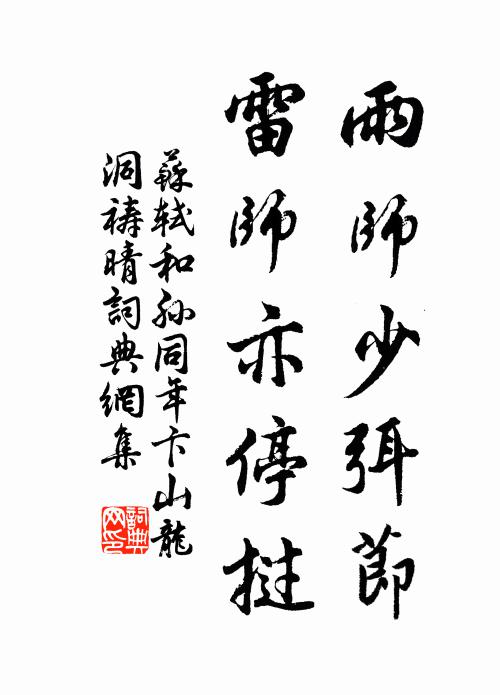 雨師少弭節
雷師亦停撾
蘇軾和孫同年卞山龍
洞禱晴詞典網集
詞典网印